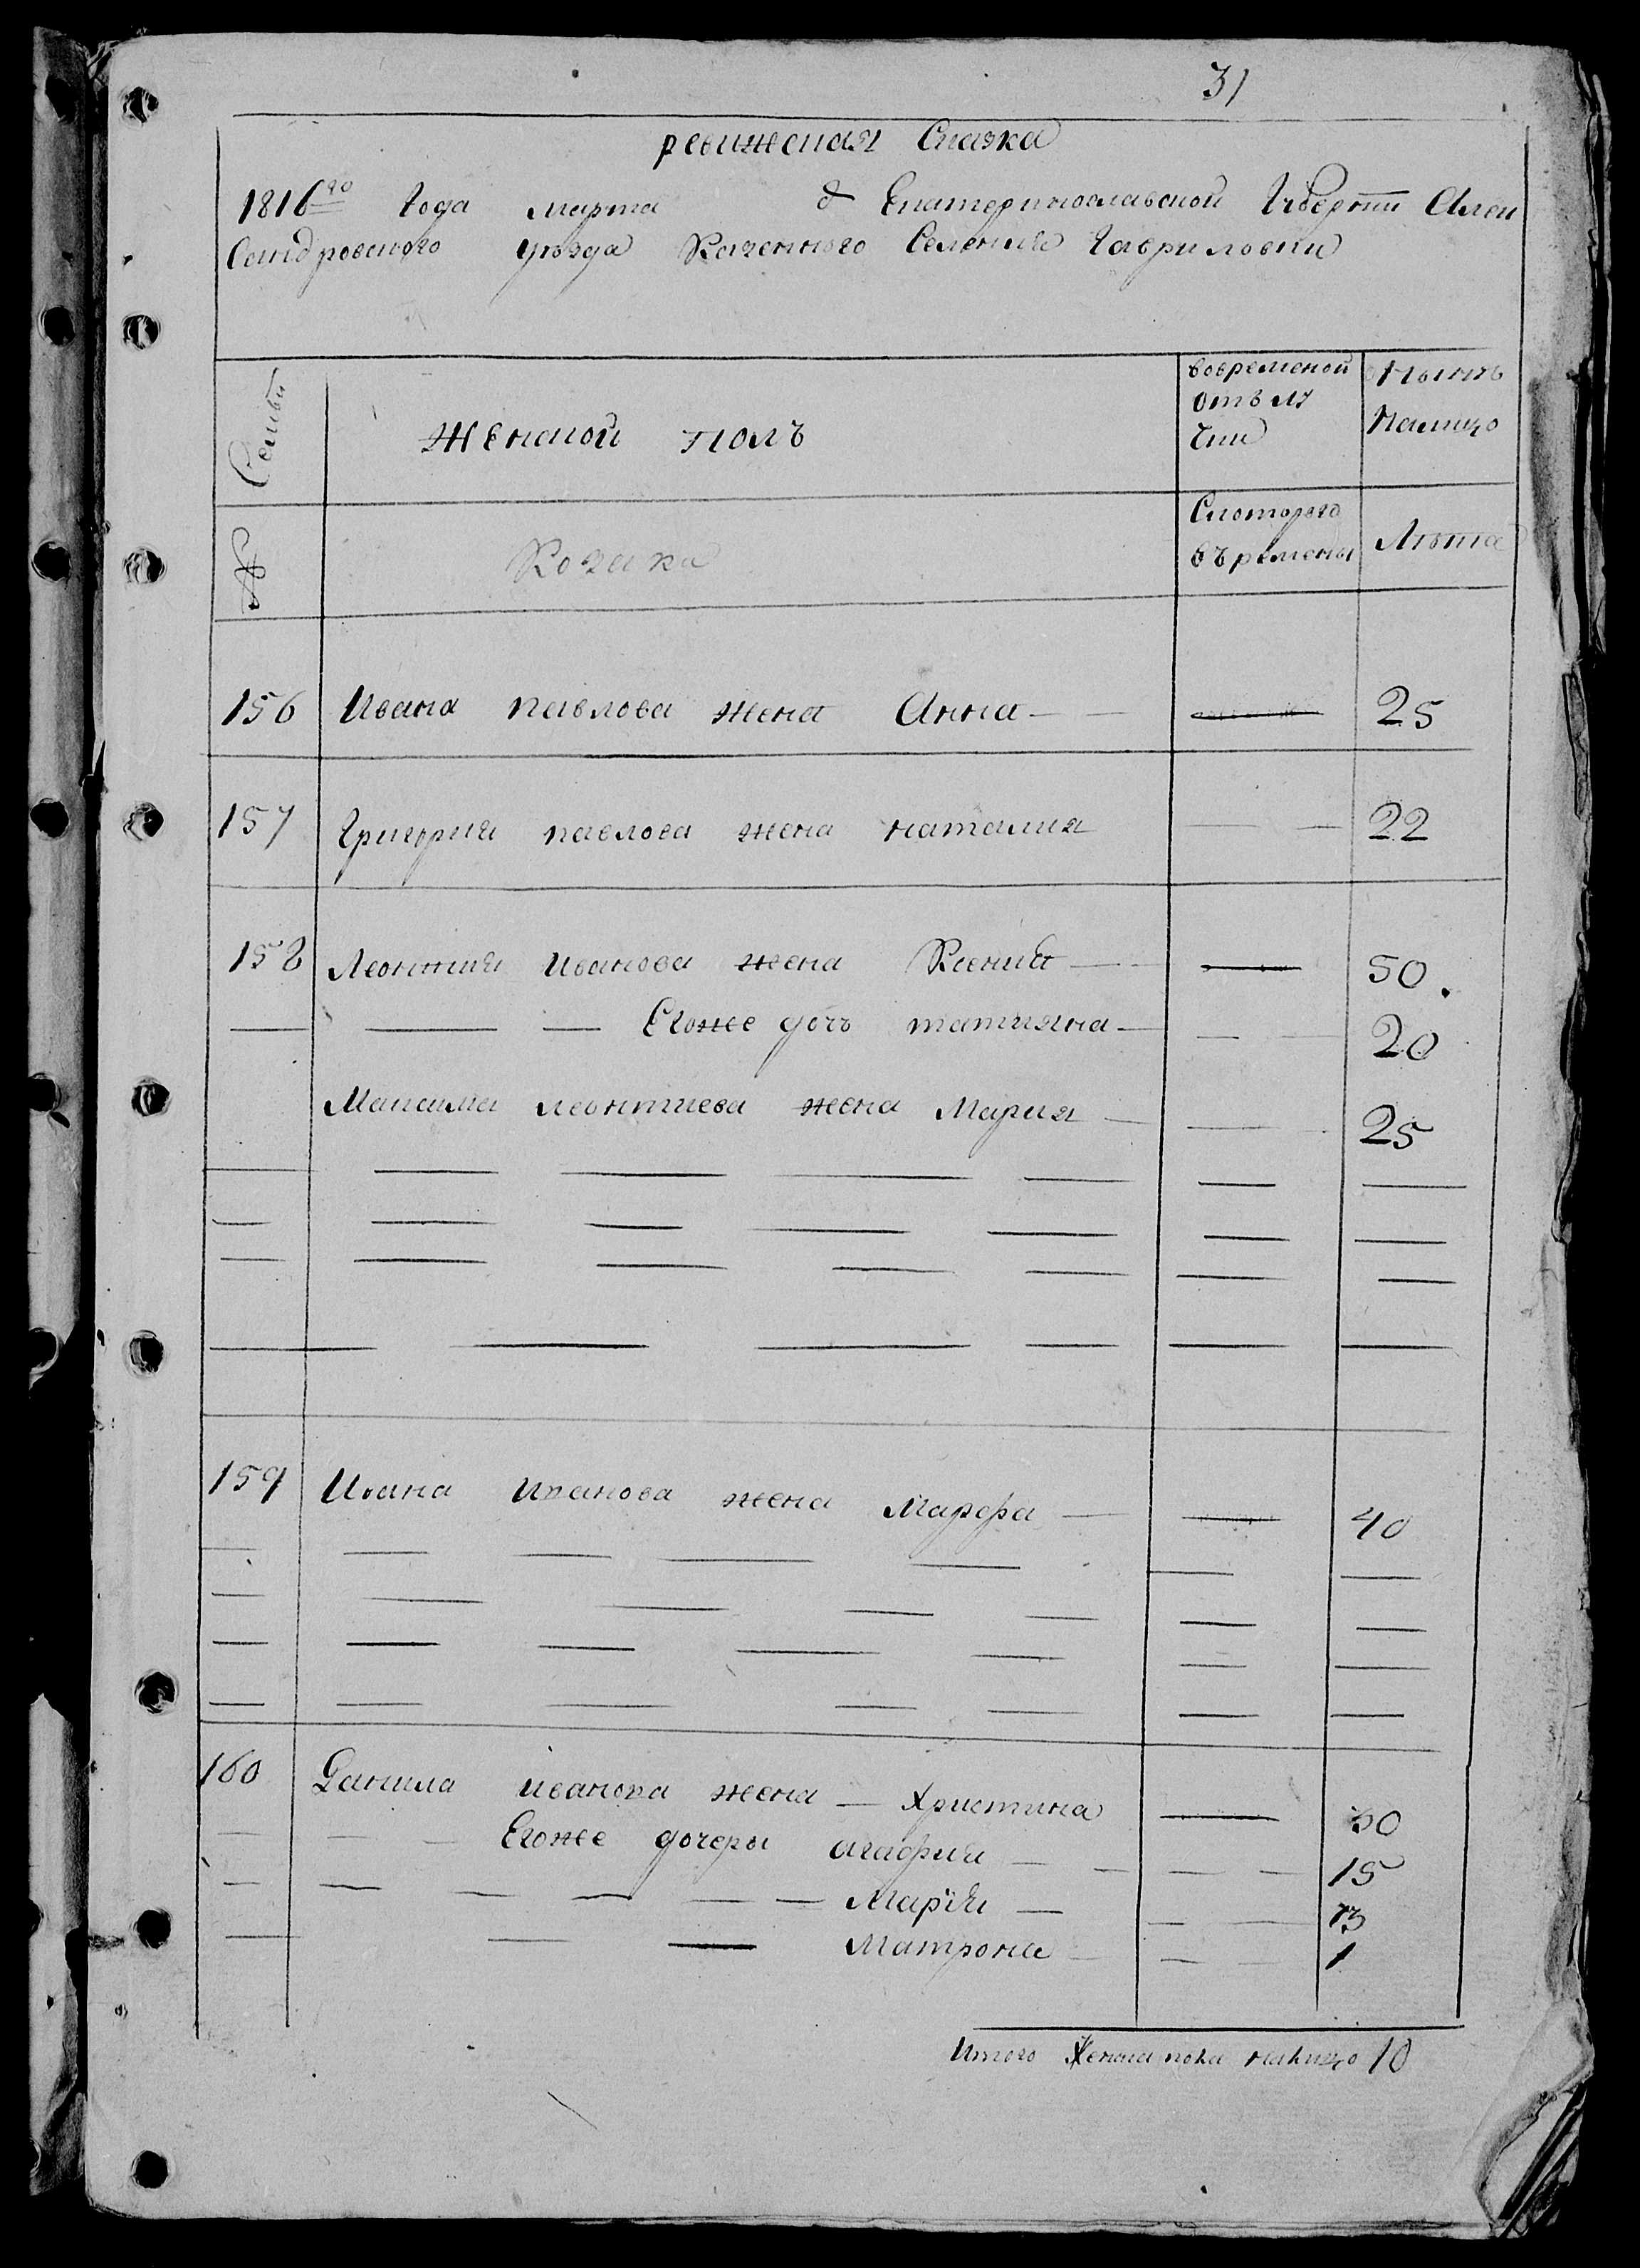 31
ревижская Сказка
1816го Года марта д Екатеринославской Губернии Алек
Сандровского уезда Казенного Селения Гавриловки
Семьи
Женской полъ
вовременой
отълу
чки
Ныинъ
Налицо
№
Козака
Скоторого
въремены
Лъта
156 Ивана павлова жена Анна 25
157 Григория павлова жена наталия 22
158 Леонтия Иванова жена Ксения 50
Егоже дочь татияна 20
Максима леонтиева жена Мария 25
159 Ивана Иванова жена Марфа 40
160 Данила иванова жена Христина 30
Егоже дочеры агафия 15
Марія 13
Матрона 1
Итого Женска пола налицо 10